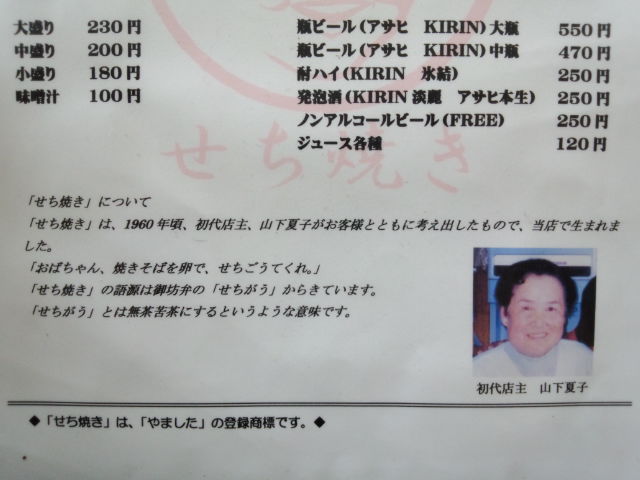 大盛り 230円
中盛り 200円
小盛り 180円
味噌汁 100円
瓶ビール(アサヒ KIRIN)大瓶 550円
瓶ビール(アサヒ KIRIN)中瓶 470円
酎ハイ(KIRIN 氷結) 250円
発泡酒(KIRIN淡麗 アサヒ本生) 250円
ノンアルコールビール(FREE) 250円
ジュース各種 120円
せち焼き
「せち焼き」について
「せち焼き」は、1960年頃、初代店主、山下夏子がお客様とともに考え出したもので、当店で生まれま
した。
「おばちゃん、焼きそばを卵で、せちごうてくれ。」
「せち焼き」の語源は御坊弁の「せちがう」からきています。
「せちがう」とは無茶苦茶にするというような意味です。
初代店主 山下夏子
◆「せち焼き」は、「やました」の登録商標です。◆